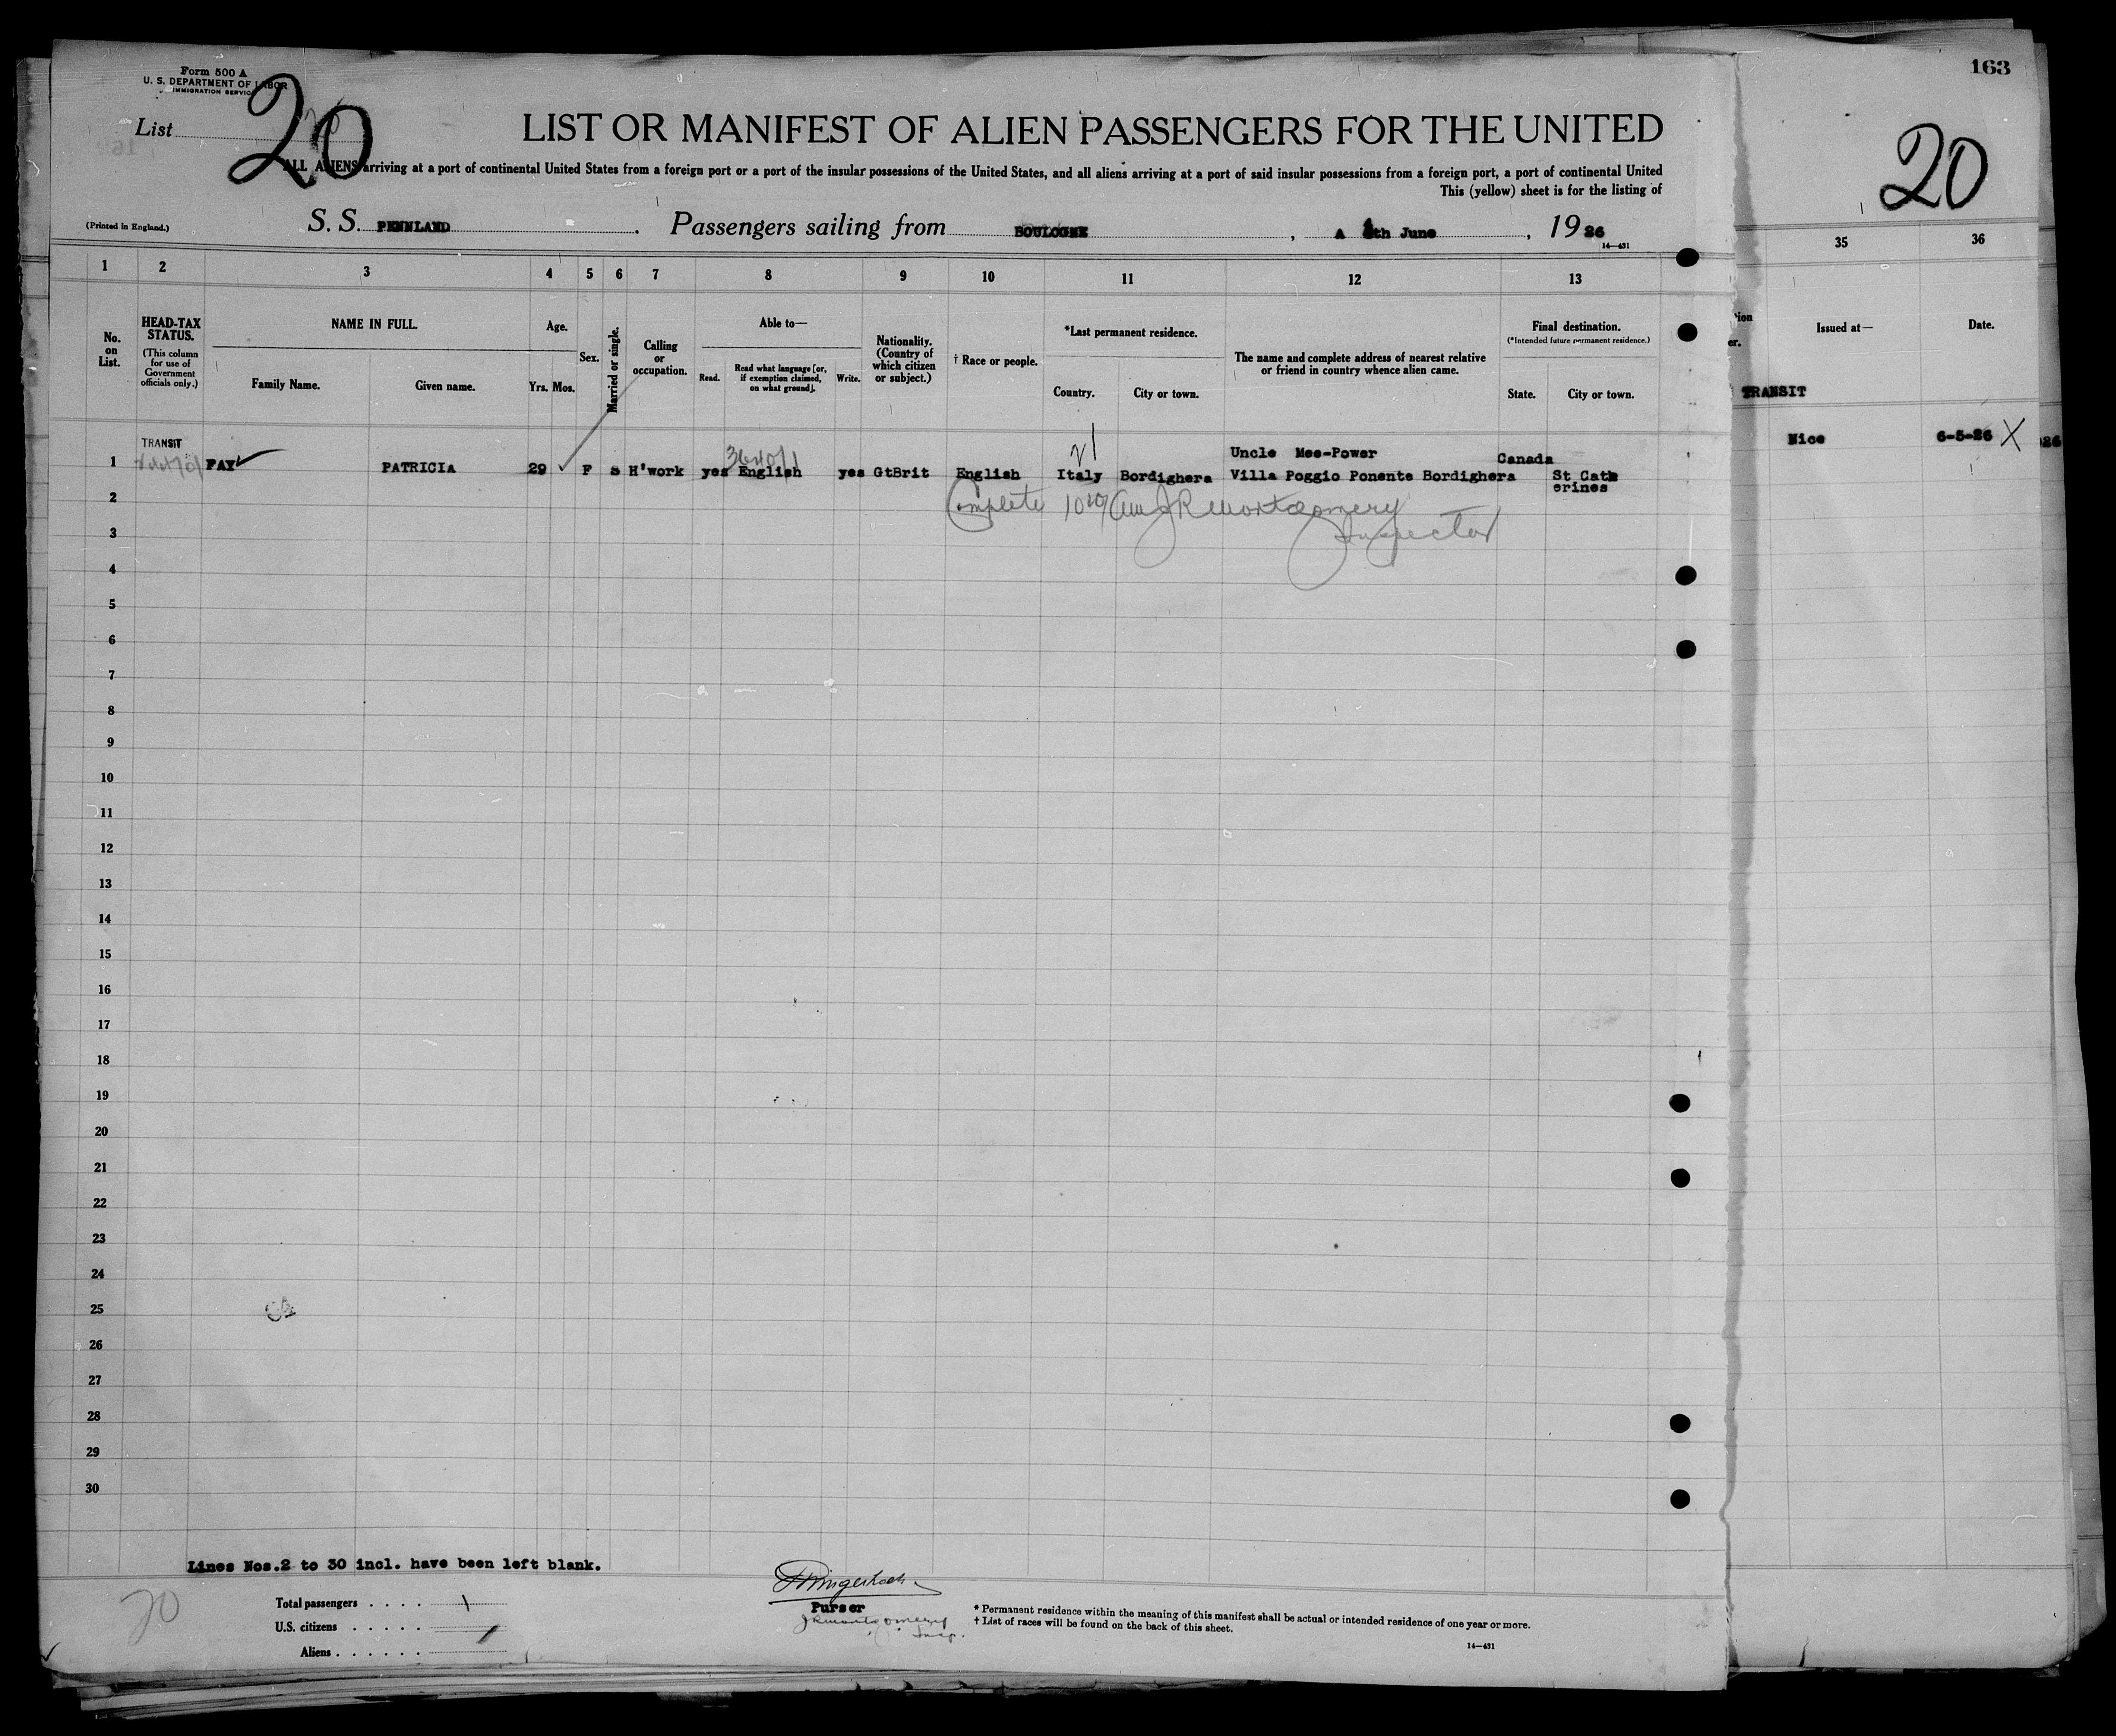 Form 500 A
U. S. DEPARTMENT OF LABOR
IMMIGRATION SERVICE
163
List 20
20
LIST OR MANIFEST OF ALIEN PASSENGERS FOR THE UNITED
ALL ALIENS arriving at a port of continental United States from a foreign port or a port of the insular possessions of the United States, and all aliens arriving at a port of said insular possessions from a foreign port, a port of continental United
This (yellow) sheet is for the listing of
(Printed in England.)
S. S. PENNLAND. Passengers sailing from BOULOGNE, th June, 1926
14—431
1 2 3 4 5 6 7 8 9 10 11 12 13 35 36
No. on List.
HEAD-TAX STATUS.
(This column for use of Government officials only.)
NAME IN FULL.
Family Name. Given name.
Age.
Yrs. Mos.
Sex.
Married or single.
Calling or occupation.
Able to—
Read. Read what language [or, if exemption claimed, on what ground]. Write.
Nationality. (Country of which citizen or subject.)
† Race or people.
*Last permanent residence.
Country. City or town.
The name and complete address of nearest relative or friend in country whence alien came.
Final destination.
(*Intended future permanent residence.)
State. City or town.
Issued at— Date.
TRANSIT
TRANSIT
Uncle Mee-Power Canada
1 FAY PATRICIA 29 F S H'work yes English yes GtBrit English Italy Bordighera Villa Poggio Ponente Bordighera St Cath
erines
Nice 6-5-26 X
26
2 Complete Am J R Montgomery
3 Inspector
4
5
6
7
8
9
10
11
12
13
14
15
16
17
18
19
20
21
22
23
24
25
26
27
28
29
30
Lines Nos.2 to 30 incl. have been left blank.
20
Total passengers . . . . 1
U.S. citizens . . . . .
Aliens . . . . . .
Purser
J R Montgomery
Insp.
* Permanent residence within the meaning of this manifest shall be actual or intended residence of one year or more.
† List of races will be found on the back of this sheet.
14—431